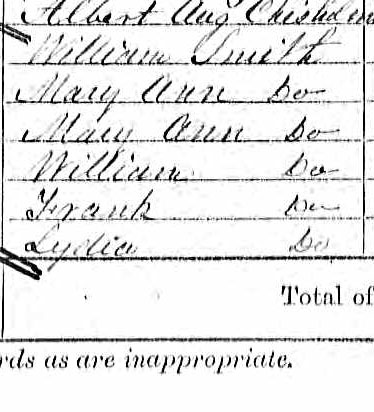 Albert Aug Chisholm
William Smith
Mary Ann Do
Mary Ann Do
William Do
Frank Do
Lydia Do
Total of
rds as are inappropriate.